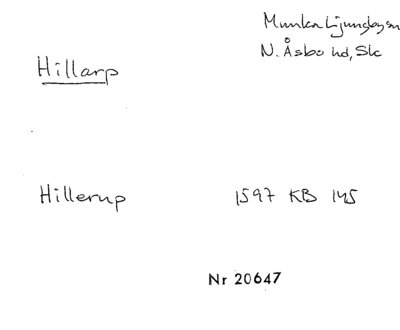 Munka Ljungbysn
N. Åsbo hd, Sk
Hillarp
Hillerup 1597 KB 145
Nr 20647